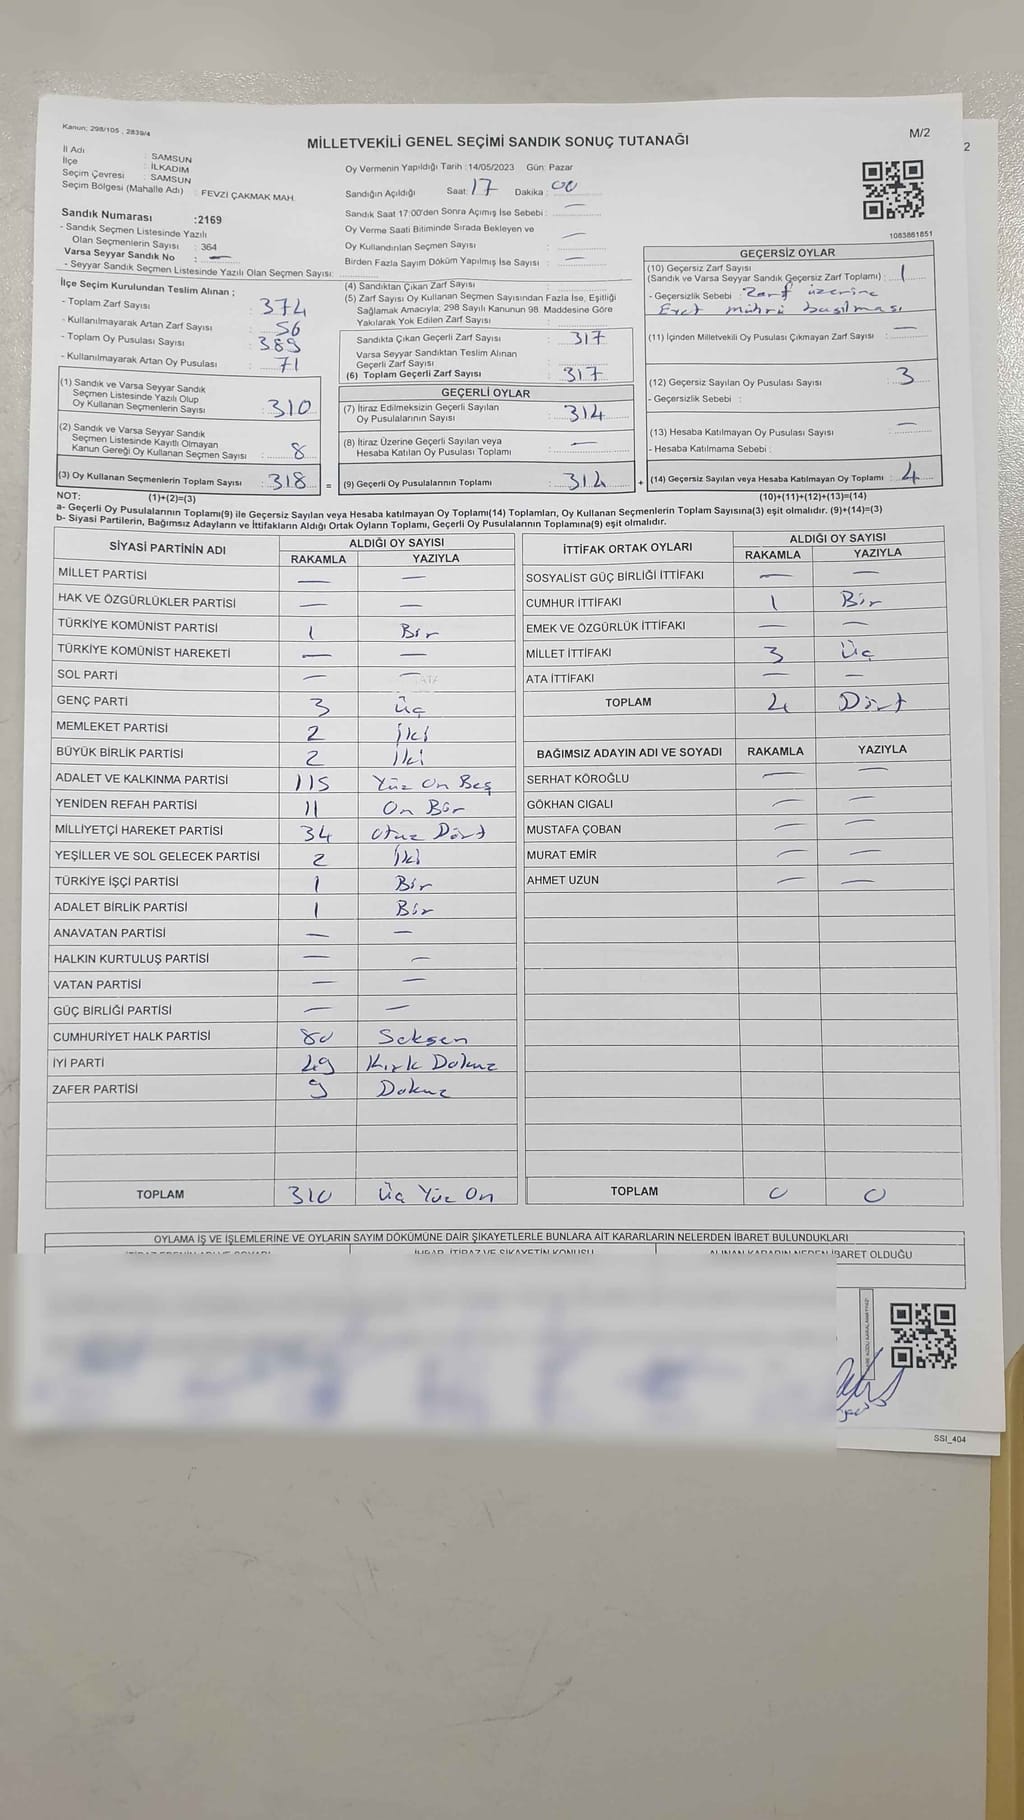 Kanun; 298/105 , 2839/4
M/2
2
MİLLETVEKİLİ GENEL SEÇİMİ SANDIK SONUÇ TUTANAĞI
İl Adı : SAMSUN
İlçe : İLKADIM
Seçim Çevresi : SAMSUN
Seçim Bölgesi (Mahalle Adı) : FEVZİ ÇAKMAK MAH.
Sandık Numarası :2169
- Sandık Seçmen Listesinde Yazılı
Olan Seçmenlerin Sayısı : 364
Varsa Seyyar Sandık No : —
- Seyyar Sandık Seçmen Listesinde Yazılı Olan Seçmen Sayısı:
Oy Vermenin Yapıldığı Tarih :14/05/2023 Gün: Pazar
Sandığın Açıldığı Saat: 17 Dakika : 00
Sandık Saat 17:00'den Sonra Açımış İse Sebebi : —
Oy Verme Saati Bitiminde Sırada Bekleyen ve
Oy Kullandırılan Seçmen Sayısı : —
Birden Fazla Sayım Döküm Yapılmış İse Sayısı : —
1083861851
İlçe Seçim Kurulundan Teslim Alınan ;
- Toplam Zarf Sayısı : 374
- Kullanılmayarak Artan Zarf Sayısı : 56
- Toplam Oy Pusulası Sayısı : 389
- Kullanılmayarak Artan Oy Pusulası : 71
(1) Sandık ve Varsa Seyyar Sandık
Seçmen Listesinde Yazılı Olup
Oy Kullanan Seçmenlerin Sayısı : 310
(2) Sandık ve Varsa Seyyar Sandık
Seçmen Listesinde Kayıtlı Olmayan
Kanun Gereği Oy Kullanan Seçmen Sayısı : 8
(3) Oy Kullanan Seçmenlerin Toplam Sayısı : 318 =
(4) Sandıktan Çıkan Zarf Sayısı :
(5) Zarf Sayısı Oy Kullanan Seçmen Sayısından Fazla İse, Eşitliği
Sağlamak Amacıyla, 298 Sayılı Kanunun 98. Maddesine Göre
Yakılarak Yok Edilen Zarf Sayısı :
Sandıkta Çıkan Geçerli Zarf Sayısı : 317
Varsa Seyyar Sandıktan Teslim Alınan
Geçerli Zarf Sayısı :
(6) Toplam Geçerli Zarf Sayısı : 317
GEÇERLİ OYLAR
(7) İtiraz Edilmeksizin Geçerli Sayılan
Oy Pusulalarının Sayısı : 314
(8) İtiraz Üzerine Geçerli Sayılan veya
Hesaba Katılan Oy Pusulası Toplamı : —
(9) Geçerli Oy Pusulalarının Toplamı : 314 +
GEÇERSİZ OYLAR
(10) Geçersiz Zarf Sayısı
(Sandık ve Varsa Seyyar Sandık Geçersiz Zarf Toplamı) : 1
- Geçersizlik Sebebi : Zarf üzerine
Evet mührü basılması
(11) İçinden Milletvekili Oy Pusulası Çıkmayan Zarf Sayısı : —
(12) Geçersiz Sayılan Oy Pusulası Sayısı : 3
- Geçersizlik Sebebi :
(13) Hesaba Katılmayan Oy Pusulası Sayısı : —
- Hesaba Katılmama Sebebi :
(14) Geçersiz Sayılan veya Hesaba Katılmayan Oy Toplamı : 4
NOT: (1)+(2)=(3) (10)+(11)+(12)+(13)=(14)
a- Geçerli Oy Pusulalarının Toplamı(9) ile Geçersiz Sayılan veya Hesaba katılmayan Oy Toplamı(14) Toplamları, Oy Kullanan Seçmenlerin Toplam Sayısına(3) eşit olmalıdır. (9)+(14)=(3)
b- Siyasi Partilerin, Bağımsız Adayların ve İttifakların Aldığı Ortak Oyların Toplamı, Geçerli Oy Pusulalarının Toplamına(9) eşit olmalıdır.
SİYASİ PARTİNİN ADI ALDIĞI OY SAYISI
RAKAMLA YAZIYLA
MİLLET PARTİSİ — —
HAK VE ÖZGÜRLÜKLER PARTİSİ — —
TÜRKİYE KOMÜNİST PARTİSİ 1 Bir
TÜRKİYE KOMÜNİST HAREKETİ — —
SOL PARTİ — —
GENÇ PARTİ 3 Üç
MEMLEKET PARTİSİ 2 İki
BÜYÜK BİRLİK PARTİSİ 2 İki
ADALET VE KALKINMA PARTİSİ 115 Yüz On Beş
YENİDEN REFAH PARTİSİ 11 On Bir
MİLLİYETÇİ HAREKET PARTİSİ 34 Otuz Dört
YEŞİLLER VE SOL GELECEK PARTİSİ 2 İki
TÜRKİYE İŞÇİ PARTİSİ 1 Bir
ADALET BİRLİK PARTİSİ 1 Bir
ANAVATAN PARTİSİ — —
HALKIN KURTULUŞ PARTİSİ — —
VATAN PARTİSİ — —
GÜÇ BİRLİĞİ PARTİSİ — —
CUMHURİYET HALK PARTİSİ 80 Seksen
İYİ PARTİ 49 Kırk Dokuz
ZAFER PARTİSİ 9 Dokuz
TOPLAM 310 Üç Yüz On
İTTİFAK ORTAK OYLARI ALDIĞI OY SAYISI
RAKAMLA YAZIYLA
SOSYALİST GÜÇ BİRLİĞİ İTTİFAKI — —
CUMHUR İTTİFAKI 1 Bir
EMEK VE ÖZGÜRLÜK İTTİFAKI — —
MİLLET İTTİFAKI 3 Üç
ATA İTTİFAKI — —
TOPLAM 4 Dört
BAĞIMSIZ ADAYIN ADI VE SOYADI RAKAMLA YAZIYLA
SERHAT KÖROĞLU — —
GÖKHAN CIGALI — —
MUSTAFA ÇOBAN — —
MURAT EMİR — —
AHMET UZUN — —
TOPLAM 0 0
OYLAMA İŞ VE İŞLEMLERİNE VE OYLARIN SAYIM DÖKÜMÜNE DAİR ŞİKAYETLERLE BUNLARA AİT KARARLARIN NELERDEN İBARET BULUNDUKLARI
İTİRAZ EDENİN ADI VE SOYADI İHBAR, İTİRAZ VE ŞİKAYETİN KONUSU ALINAN KARARIN NEDEN İBARET OLDUĞU
SSI_404